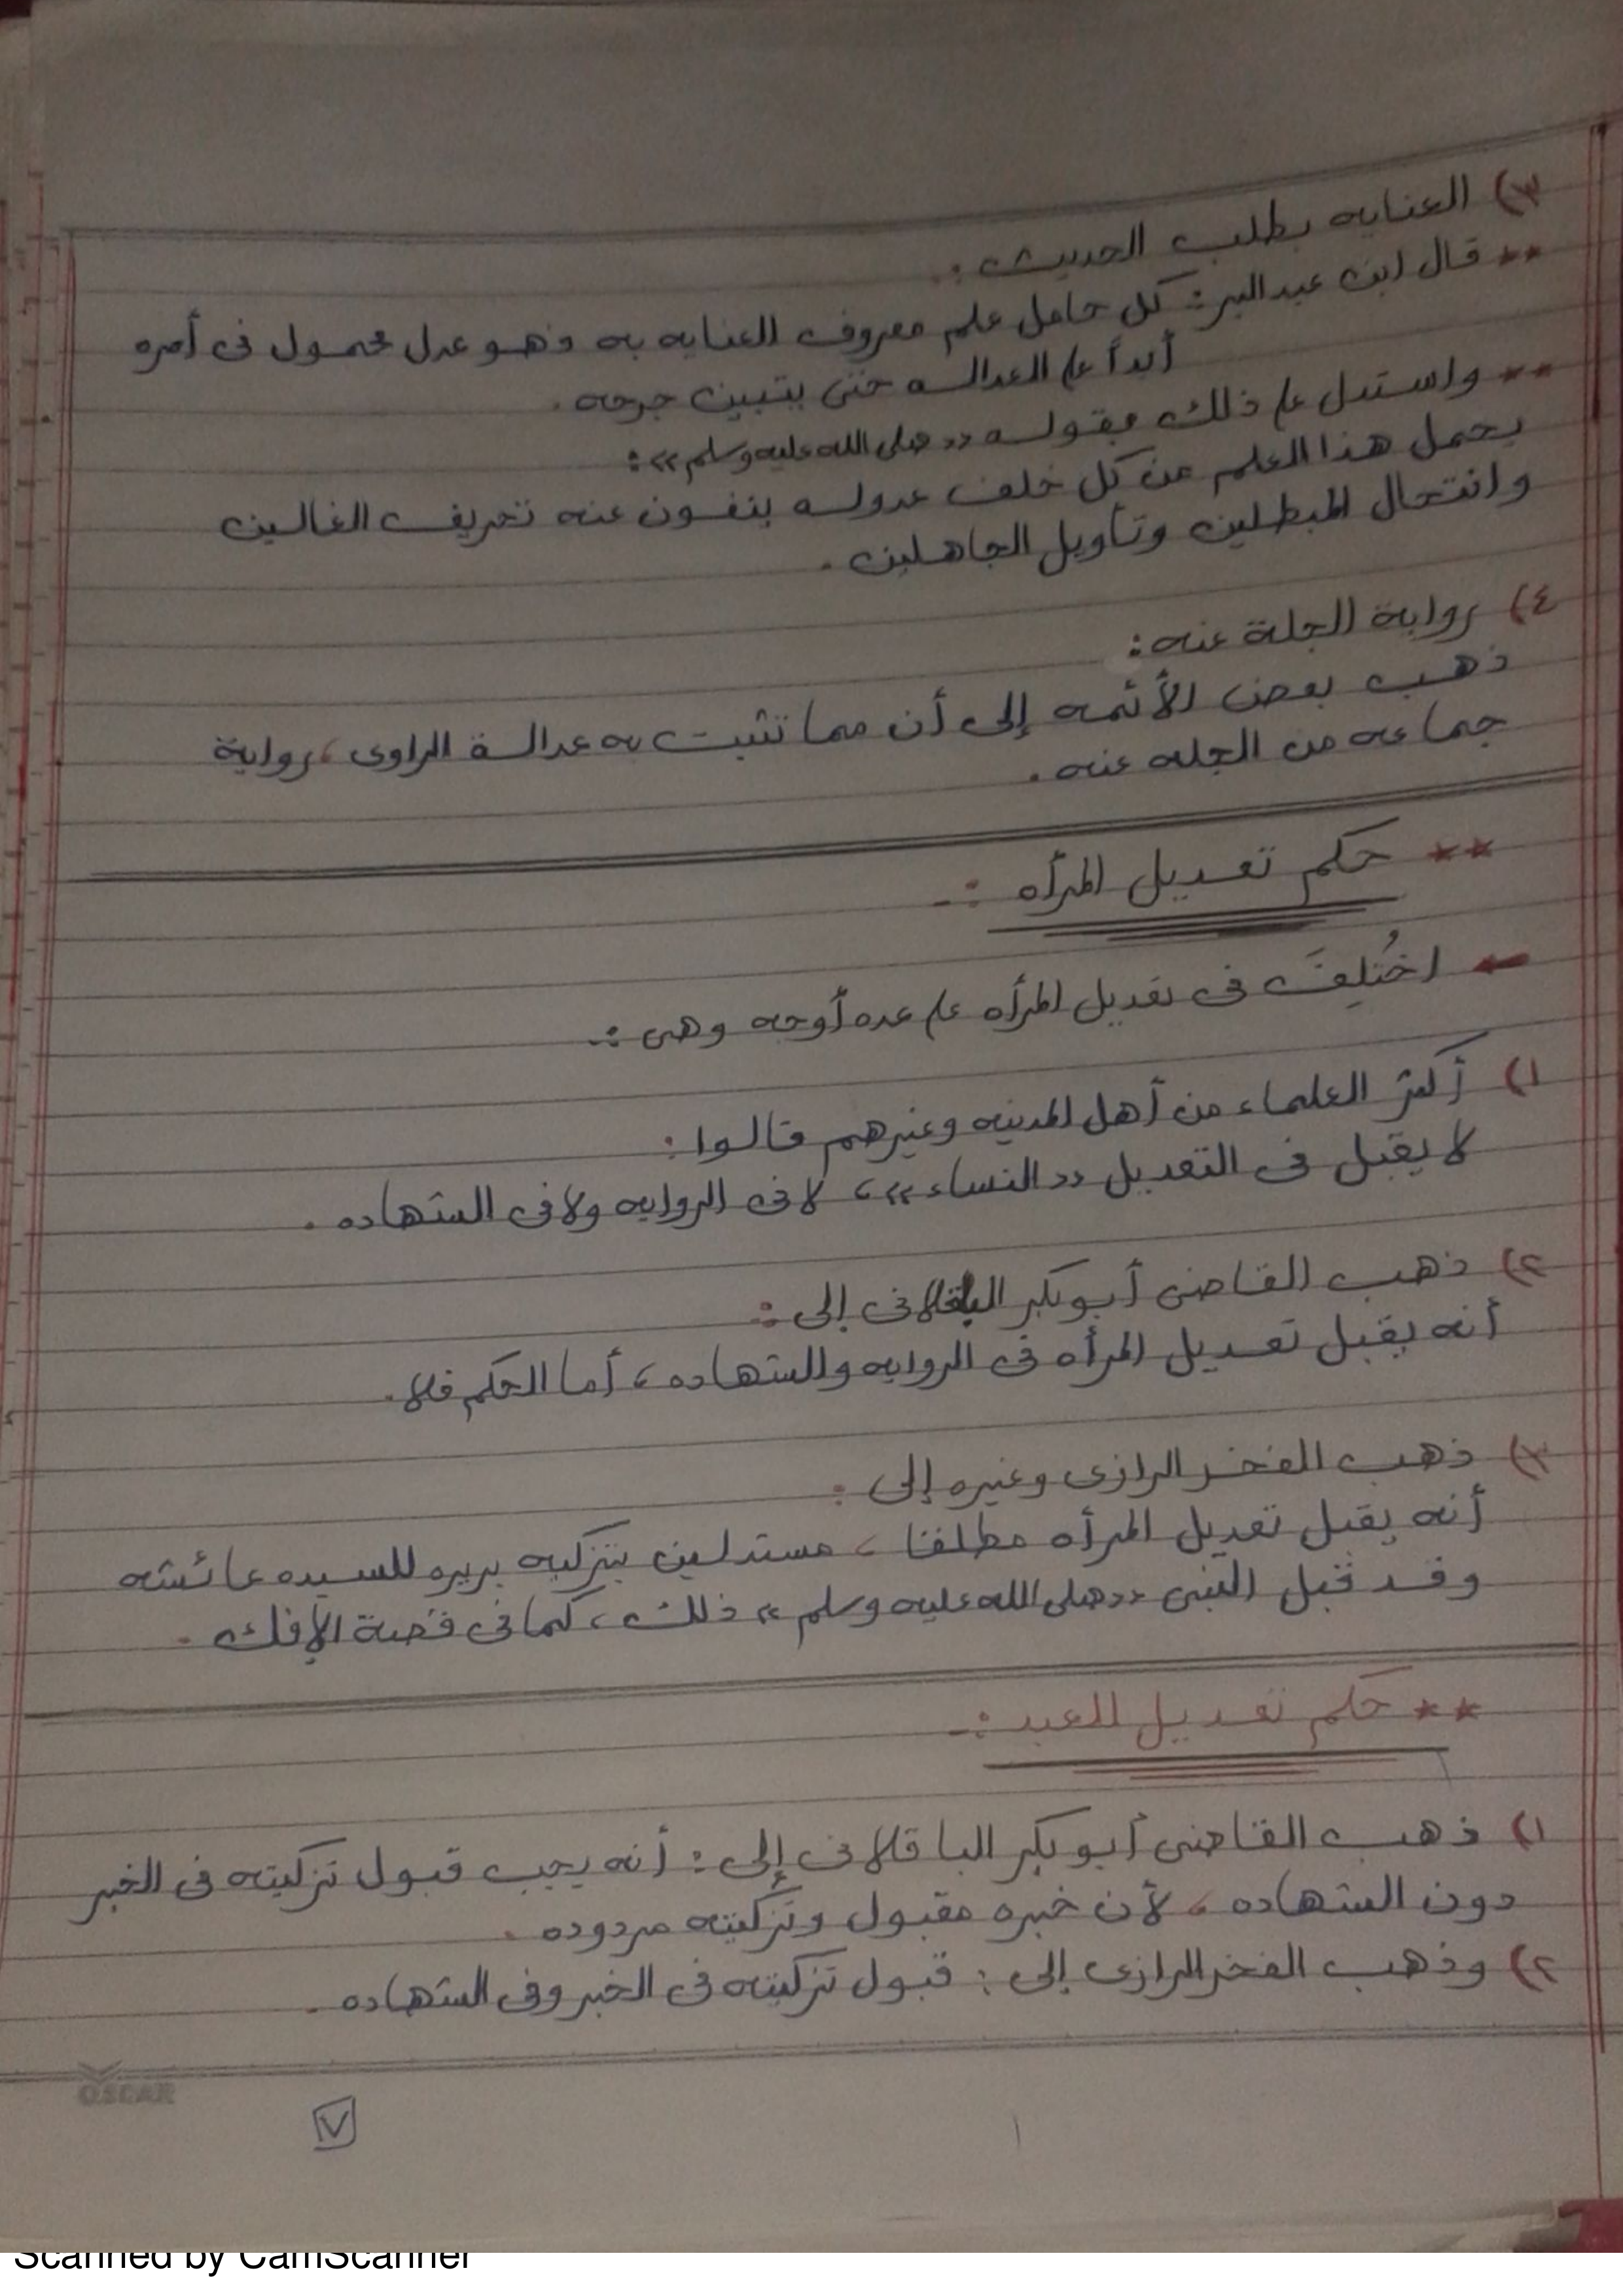 ٣) العنايه بطلب الحديث :.
** قال ابن عبد البر : كل حامل علم معروف العنايه به فهو عدل محمول فى أمره
أبداً على العداله حتى يتبين جرحه .
** واستدل على ذلك بقوله << صلى الله عليه وسلم >> :
يحمل هذا العلم من كل خلف عدوله ينفون عنه تحريف الغالين
وانتحال المبطلين وتأويل الجاهلين .
٤) رواية الجلة عنه :
ذهب بعض الأئمه إلى أن مما تثبت به عدالة الراوى ، رواية
جماعه من الجله عنه .
** حكم تعديل المرأه :-
← اختُلِفَ فى تعديل المرأه على عده أوجه وهى :-
١) أكثر العلماء من أهل المدينه وغيرهم قالوا :
لا يقبل فى التعديل << النساء >> ، لا فى الروايه ولا فى الشهاده .
٢) ذهب القاضى أبو بكر الباقلانى إلى :-
أنه يقبل تعديل المرأه فى الروايه والشهاده ، أما الحكم فلا .
٣) ذهب الفخر الرازى وغيره إلى :
أنه يقبل تعديل المرأه مطلقا ، مستدلين بتزكيه بريره للسيده عائشه
وقد قبل النبى << صلى الله عليه وسلم >> ذلك ، كما فى قصة الإفك .
** حكم تعديل العبد :-
١) ذهب القاضى أبو بكر الباقلانى إلى : أنه يجب قبول تزكيته فى الخبر
دون الشهاده ، لأن خبره مقبول وتزكيته مردوده .
٢) وذهب الفخر الرازى إلى : قبول تزكيته فى الخبر وفى الشهاده .
OSCAR
٧
Scanned by CamScanner